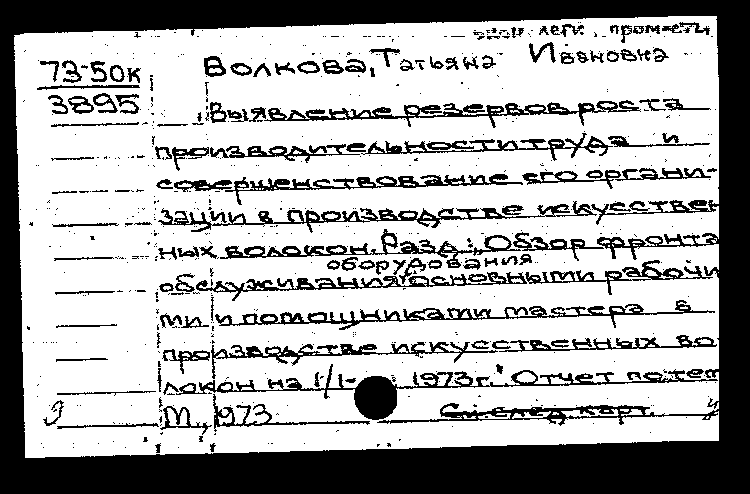 легк. пром-сть
73-50к Волкова, Татьяна Ивановна
3895
Выявление резервов роста
производительности труда и
совершенствование его органи-
зации в производстве искусствен
ных волокон. Разд.: „Обзор фронта
оборудования
обслуживания основными рабочи
ми и помощниками мастера в
производстве искусственных во
локон на 1/1- 1973г." Отчет по тем
М., 1973
См след карт.